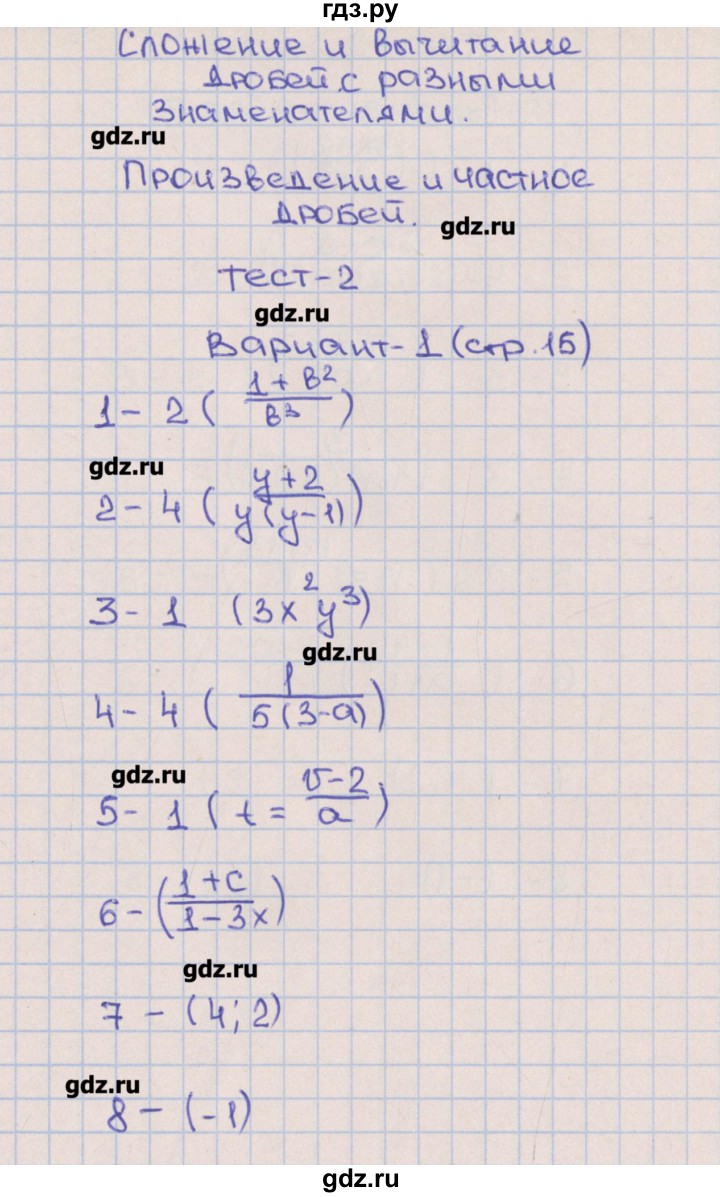 гдз.ру
Сложение и вычитание
дробей с разными
знаменателями.
gdz.ru
Произведение и частное
дробей.
gdz.ru
тест-2
gdz.ru
Вариант-1 (стр. 15)
1- 2 ( (1+в²)/в³ )
gdz.ru
2- 4 ( (y+2)/(y(y-1)) )
3- 1 (3x²y³)
gdz.ru
4- 4 ( 1/(5(3-a)) )
gdz.ru
5- 1 ( t = (v-2)/a )
6- ( (1+c)/(1-3x) )
gdz.ru
7 - (4; 2)
gdz.ru
8 - (-1)
gdz.ru